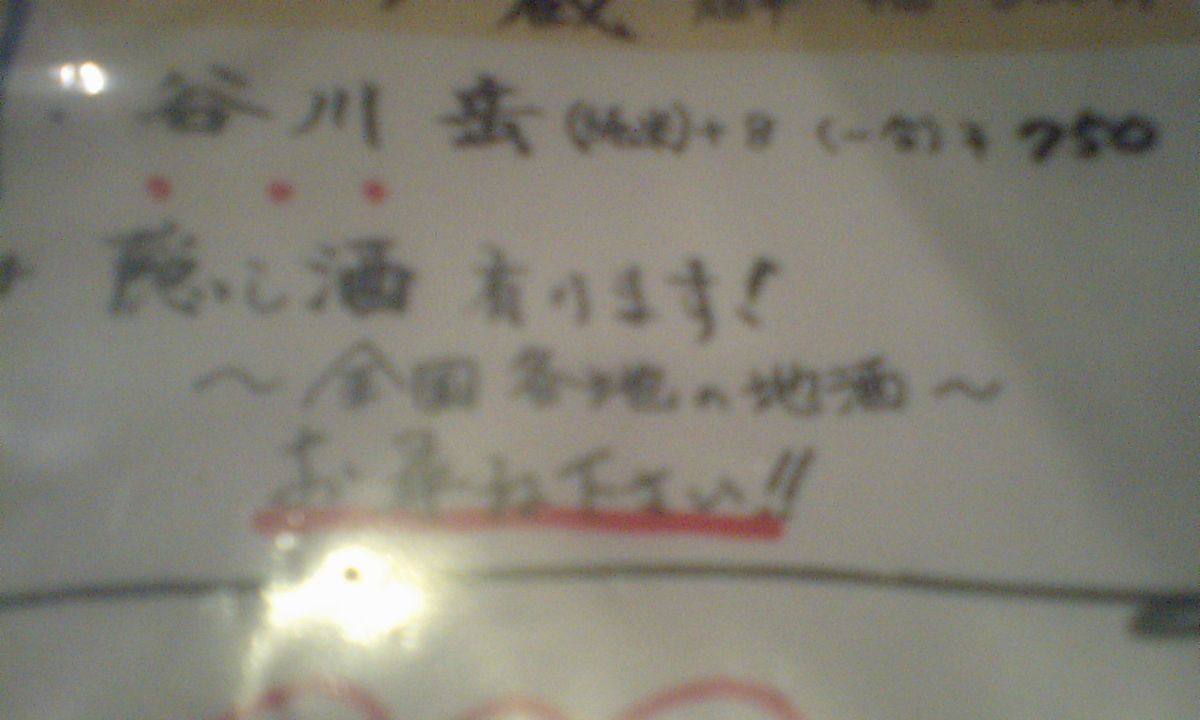 蔵
谷川岳 +8 (一合) ¥750
隠し酒 有ります!
~全国各地の地酒~
お尋ね下さい!!